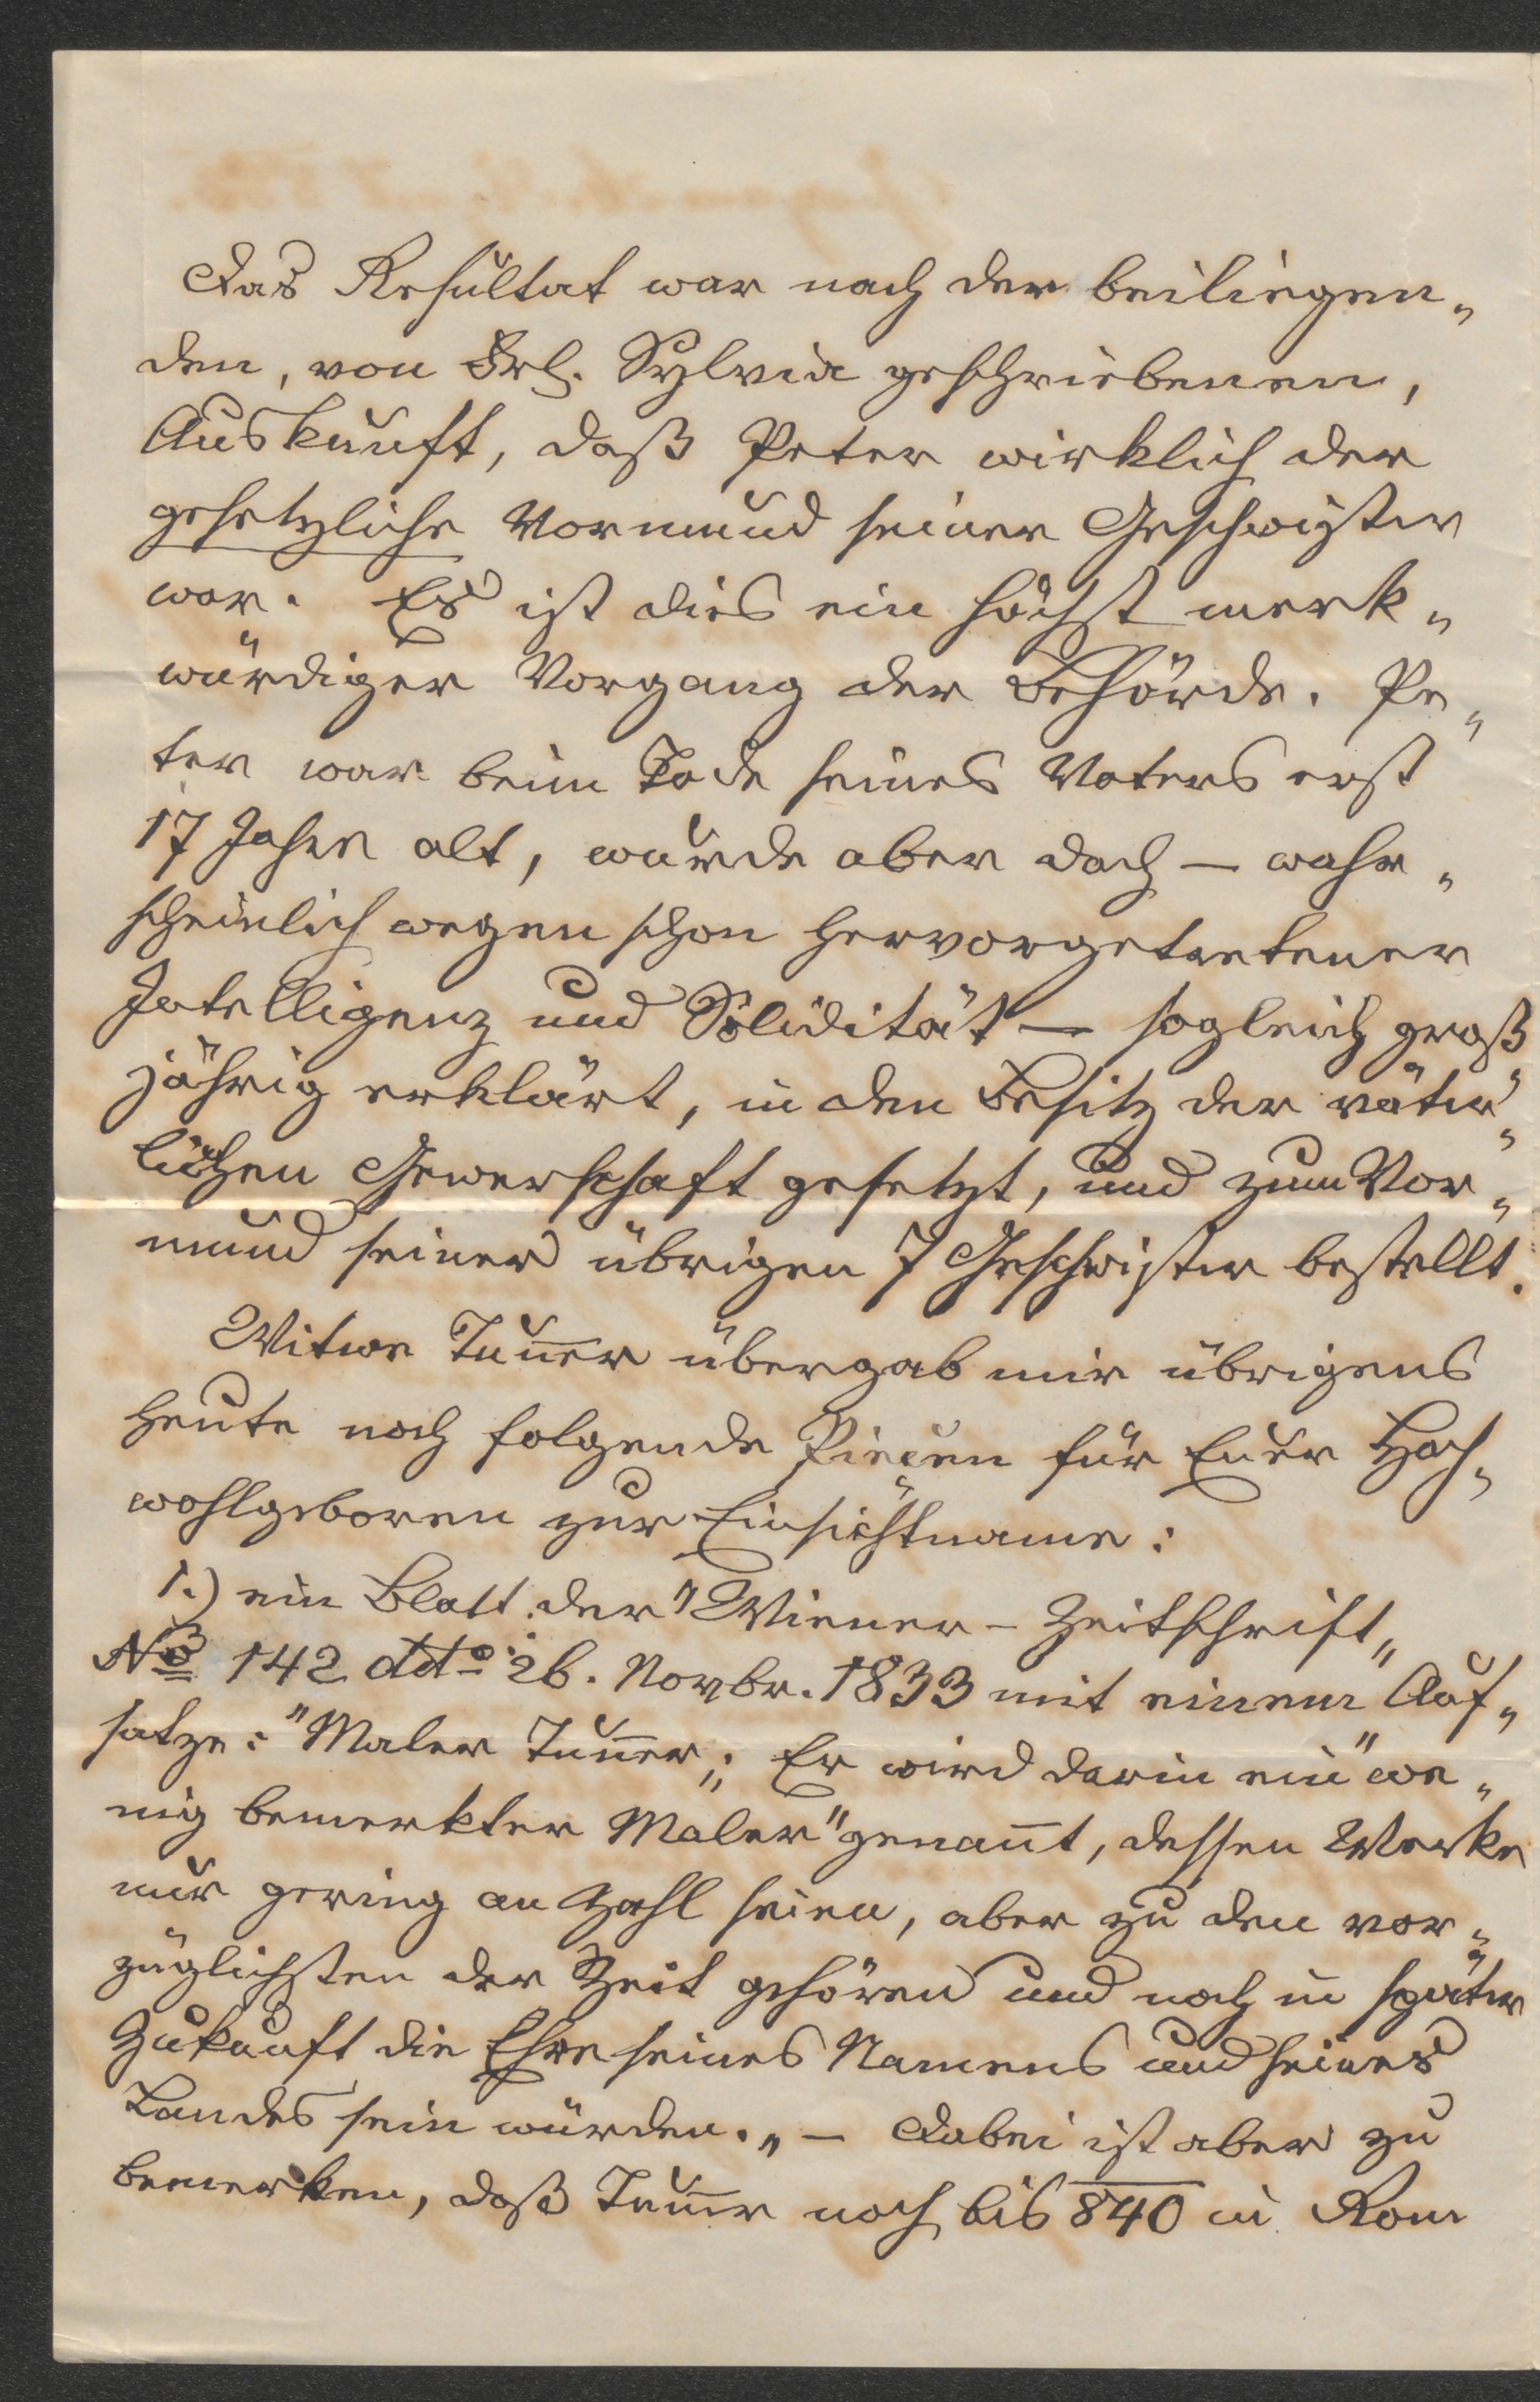 Das Resultat war nach der beiliegen„
den, von Frl. Sylvia geschriebenen,
Auskunft, daß Peter wirklich der
gesetzliche Vormund seiner Geschwister
war. Es ist dies ein höchst merk„
würdiger Vorgang der Behörde. Pe„
ter war beim Tode seines Vaters erst
17 Jahre alt, wurde aber doch — wahr„
scheinlich wegen schon hervorgetretener
Intelligenz und Solidität — sogleich groß„
jährig erklärt, in den Besitz der väter„
lichen Gewerkschaft gesetzt, und zum Vor„
mund seiner übrigen 7 Geschwister bestellt.
Witwe Tun̅er übergab mir übrigens
heute noch folgende Piecen für Euer Hoch„
wohlgeboren zur Einsichtname:
1.) ein Blatt der "Wiener-Zeitschrift„
No 142 ddto 26. Novbr. 1833 mit einem Auf„
satze: "Maler Tun̅er„; Er wird darin ein "we„
nig bemerkter Maler" genan̅t, dessen Werke
nur gering an Zahl seien, aber zu den vor„
züglichsten der Zeit gehören und noch in später
Zukunft die Ehre seines Namens und seines
Landes sein würden.„ — Dabei ist aber zu
bemerken, daß Tun̅er noch bis 840 in Rom